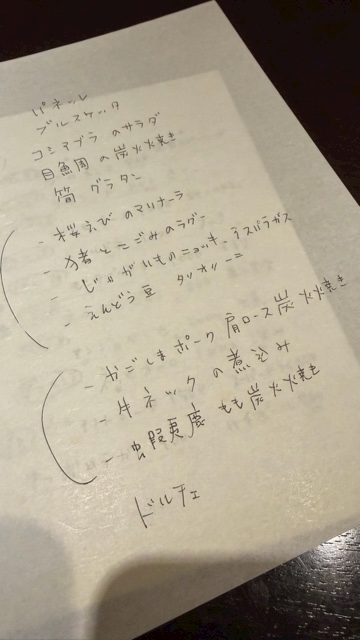 パネッレ
ブルスケッタ
コシアブラ のサラダ
目魚團 の炭火焼き
筒 グラタン
- 桜えび のマリナーラ
- 猪とこごみのラグー
- じゃがいものニョッキ アスパラガス
- えんどう豆 タリオリーニ
- かごしまポーク 肩ロース炭火焼き
- 牛ネックの煮込み
- 蝦夷鹿 もも炭火焼き
ドルチェ